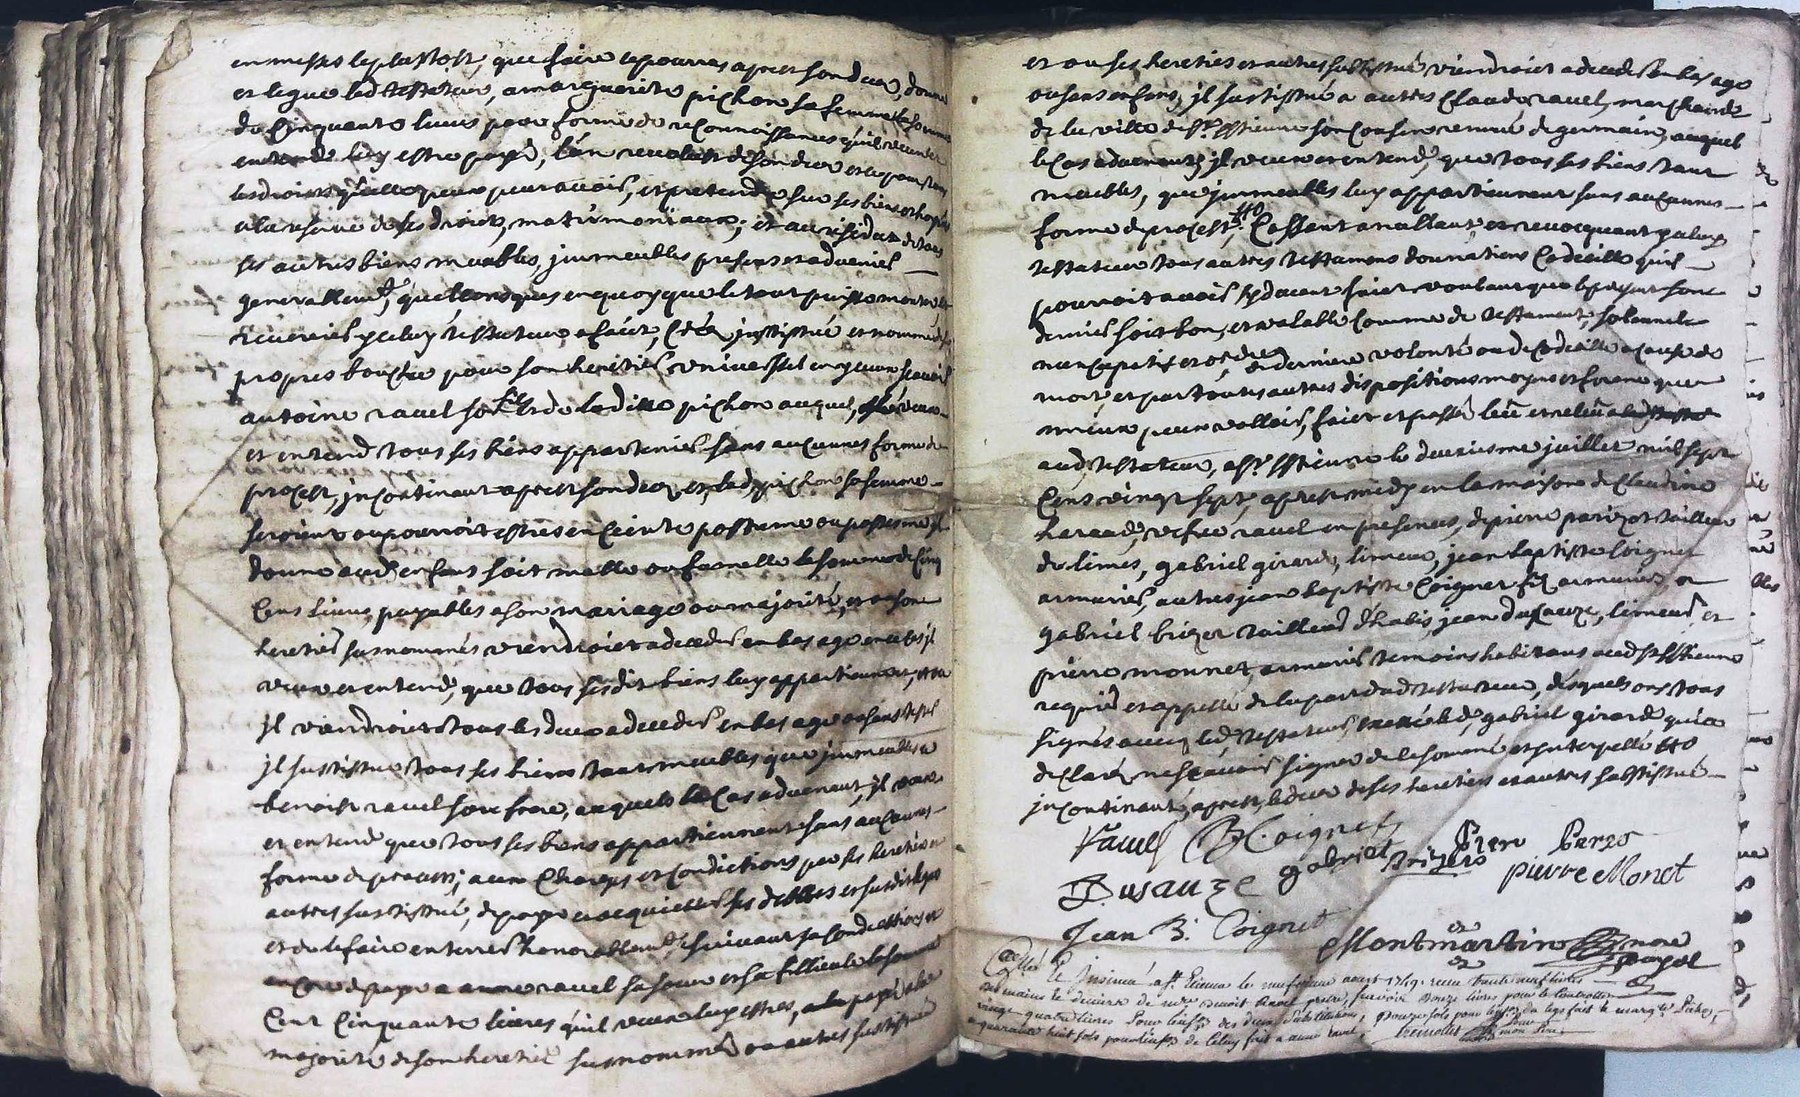 en messes le plustost que faire se pourra apres son deces, donne
et legue led testateur, a marguerite pichon sa femme la somme
de Cinquante livres pour forme de reconnoissances qu'il veut et
entend luy estre payé, l'an revolut de son deces et ce pour tous
les droits qu'elle peux pouravoir, et pretendre sur ses biens et hoyrie
a la reserve de ses droits matrimoniaux; et au residut de tous
ses autres biens meubles, immeubles presens et advenir
generallemt quelconques en quoy que le tout puisse monter et
iceluy testateur a faict, créé institué et nommé de sa
propre bouche pour son heretier universel en geneer scavoir
antoine ravel so fils et de ladite pichon auquel veux
et entend tous ses biens appartenir sans aucunes forme de
procest, incontinant apres son deces, et, lad pichon sa femme
seroient ou pourroit estre en ceinte postume ou postumes il
donne aud enfant soit malle ou femelle la somme de Cinq
Cens livres payables a son mariage ou majorité, et ou son
heretier susnommés viendroit a deceder en bas age en ce cas il
veux et entend, que tous sesdit biens luy appartiennent,
il viendroient tous les deux a deceder en bas age ou sans
il sustistue tous ses biens tant meubles que immeubles a
benoist ravel son frere, auquels le Cas advenant, il veux
et entend que tous ses biens appartiennent sans aucunes
forme de procest; aux Charges et Condictions par ses heretier et
autres sustistué, de payer et acquitter ses debtes et susdit legas
et de le faire enterrer honorablemt suivant sa Condiction et
encore de payer a ravel sa soeur et sa fillieule la somme
Cent Cinquante livres qu'il veux luy estre, payé a la
majorité de son heretier susnommés ou autres sustistué
et ou ses heretiers et autres sustistué viendroit a deceder en bas age
ou sans enfans, il sustistue a autres Claude ravel, marchand
de la ville de St Estienne son Cousin remué de germain auquel
le Cas advenant, il veux et entend, que tous ses biens tant
meubles, que immeubles luy appartiennent sans aucunes
forme de procest, Cassant anallant, et revocquant yceluy
testateur tous autres testamens donnations Codicille quil
pourroit avoir sy devant faict voulant que le present son
dernier soit bon, et valable Comme de testament, solannel
nuncupatif et ordre de derniere volonté ou de Codicille a cause de
mort et par toutes autres dispositions moyens et forme que
mieux peux valloir, faict et passé leu et releu
aud, testateur, a St Estienne le deuxiesme juillet mil sept
Cens vingt sept, apres midy en la maison de Claudine
heraud, vefve ravel en presences, de pierre parizot tailleur
de limes, gabriel girard, limeur, jean baptiste Coignet
armurier, autre jean baptiste Coignet fils armurier
gabriel brizet tailleur d'habis, jean dusauze, limeur et
pierre monnet, armurier temoins habitans aud St Estienne
requis et appellé de la part dud testateur, desquels ons tous
signés avecq led testateur, excepté led gabriel girard qui a
declaré ne scavoir signer de le sommé et interpellé
incontinant, apres, le deces de ses heretiers et autres sustistué
Ravel JB Coignet
gabriel brizet
Dusauze
Pierre Monet
Jean B. Coignet
Montmartin nore
royal
Insinué a St Etienne le neufieme aoust 1749. receu trente neuf livres
des mains le deniere de mre Benoit Ravel pretre, scavoir Douze livres pour le Controlle
vingt quatre livres Pour l'insson des deux substitutions, pour l'insson du legs fait a marguerite Pichon,
quarante huit sols pour l'insson de Celuy fait a ravel